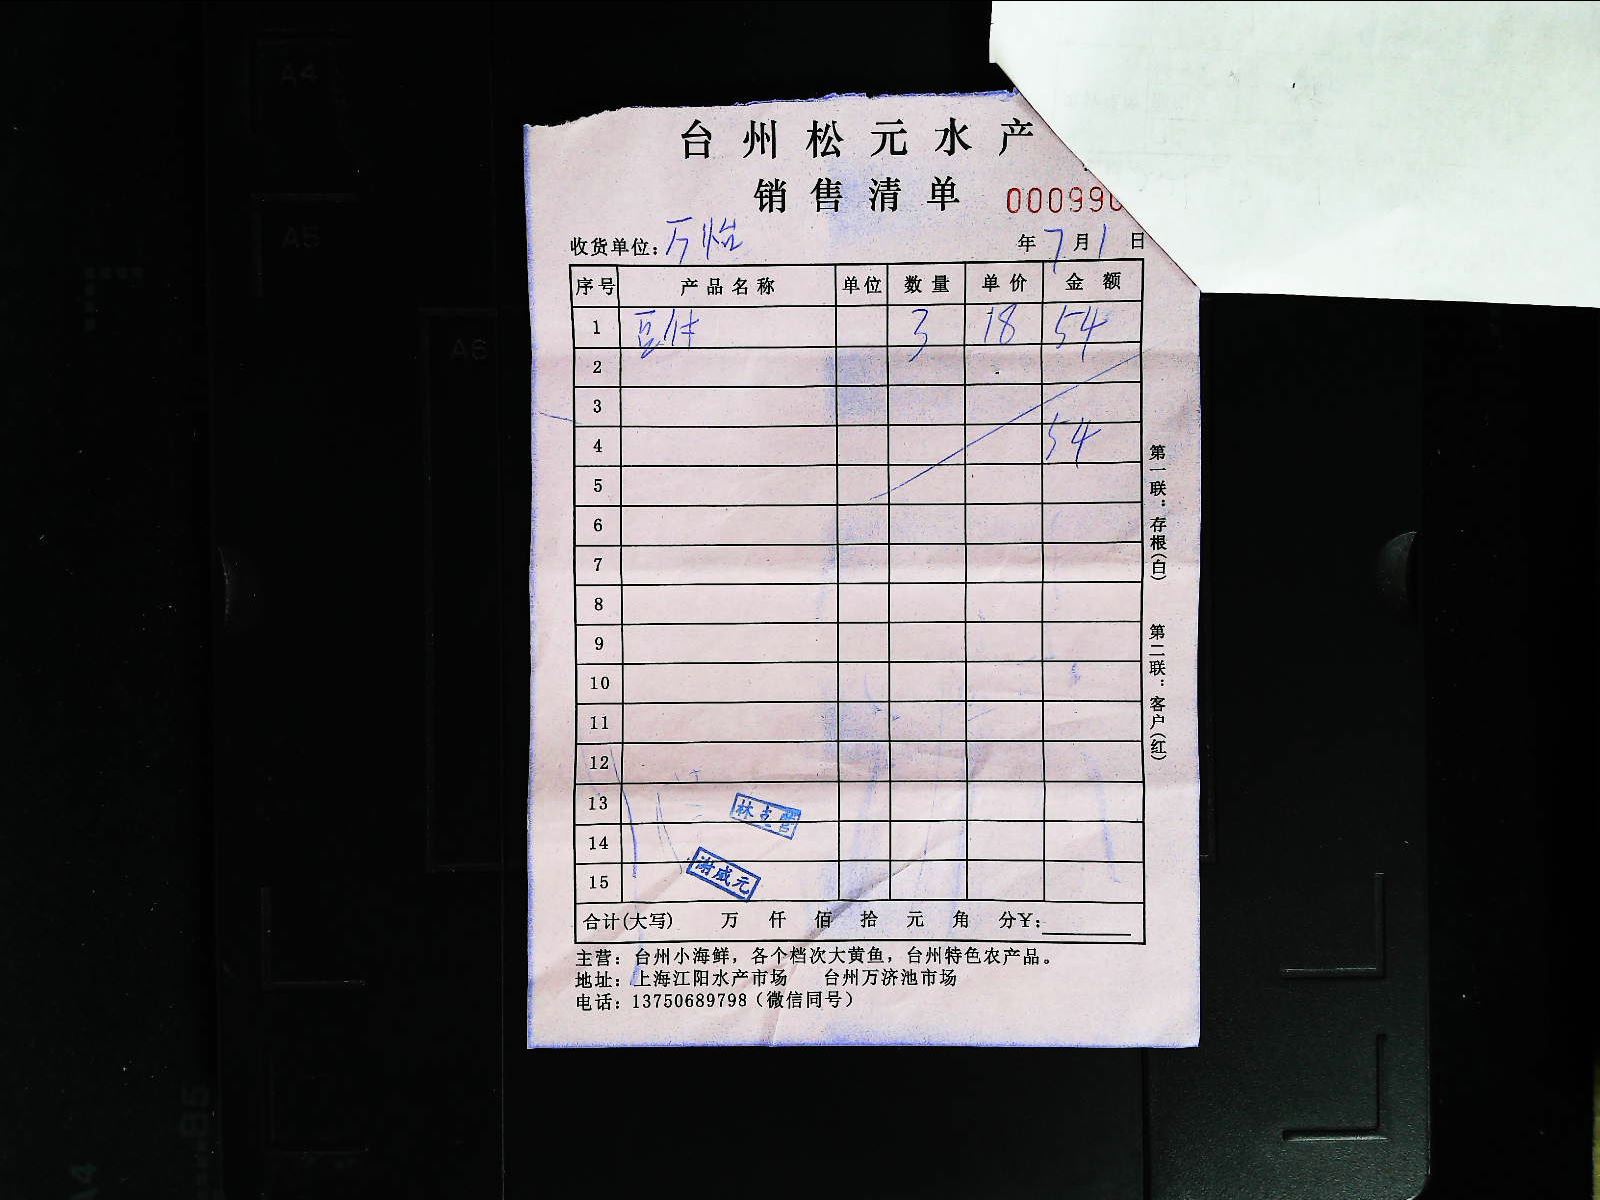 台州松元水产
销售清单 000990
收货单位: 万怡 年 7 月 1 日
序号 产品名称 单位 数量 单价 金额
1 3 18 54
2
3
4 54
5
6
7
8
9
10
11
12
13
14
15
合计(大写) 万 仟 佰 拾 元 角 分¥:
主营：台州小海鲜，各个档次大黄鱼，台州特色农产品。
地址：上海江阳水产市场 台州万济池市场
电话：13750689798（微信同号）
第一联：存根(白)
第二联：客户(红)
A4
A5
A6
B5
A4